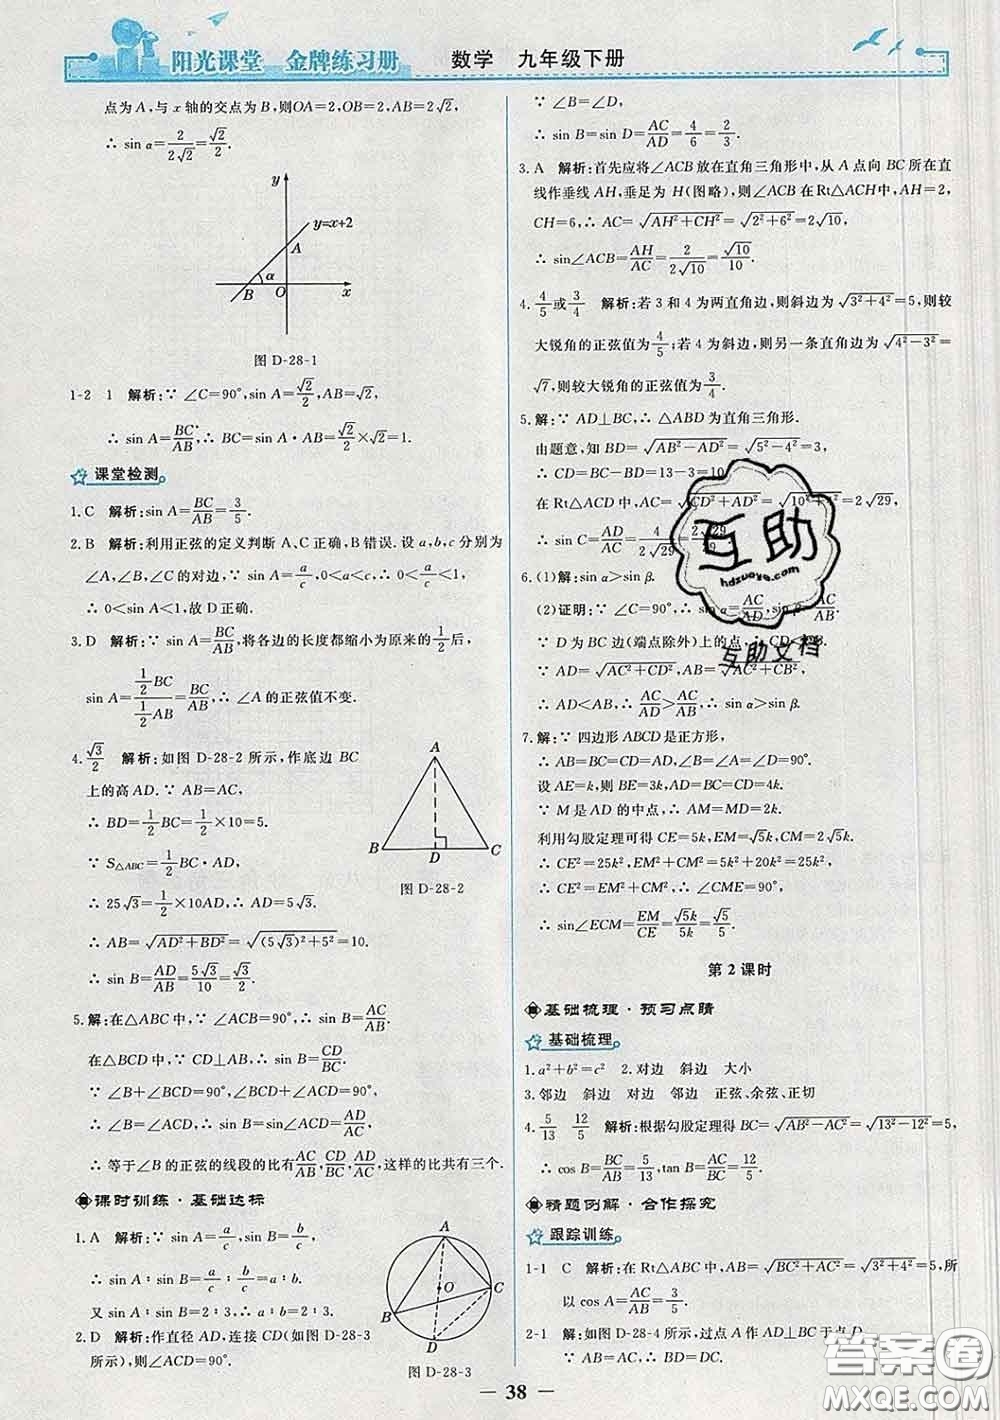 阳光课堂 金牌练习册 数学 九年级下册
点为A,与x轴的交点为B,则OA=2,OB=2,AB=2√2,
∴ sin α=2/(2√2)=√2/2.
y
y=x+2
A
α
B O x
图 D-28-1
1-2 1 解析:∵ ∠C=90°,sin A=√2/2,AB=√2,
∴ sin A=BC/AB,∴ BC=sin A·AB=√2/2×√2=1.
课堂检测
1.C 解析:sin A=BC/AB=3/5.
2.B 解析:利用正弦的定义判断 A、C 正确,B 错误.设 a,b,c 分别为
∠A,∠B,∠C 的对边,∴ sin A=a/c,0<a<c,∴ 0<a/c<1,
∴ 0<sin A<1,故 D 正确.
3.D 解析:∵ sin A=BC/AB,将各边的长度都缩小为原来的1/2后,
sin A=(1/2 BC)/(1/2 AB)=BC/AB,∴ ∠A 的正弦值不变.
4.√3/2 解析:如图 D-28-2 所示,作底边 BC
上的高 AD.∵ AB=AC,
∴ BD=1/2 BC=1/2×10=5.
∵ S△ABC=1/2 BC·AD,
∴ 25√3=1/2×10AD,∴ AD=5√3.
∴ AB=√(AD²+BD²)=√((5√3)²+5²)=10.
∴ sin B=AD/AB=5√3/10=√3/2.
A
B D C
图 D-28-2
5.解:在△ABC 中,∵ ∠ACB=90°,∴ sin B=AC/AB.
在△BCD 中,∵ CD⊥AB,∴ sin B=CD/BC.
∵ ∠B+∠BCD=90°,∠ACD+∠BCD=90°,
∴ ∠B=∠ACD,∴ sin B=sin∠ACD=AD/AC.
∴ 等于∠B 的正弦的线段的比有AC/AB,CD/BC,AD/AC,这样的比共有三个.
课时训练·基础达标
1.A 解析:∵ sin A=a/c,sin B=b/c,
∴ sin A∶sin B=a/c∶b/c=a∶b.
又 sin A∶sin B=2∶3,∴ a∶b=2∶3.
2.D 解析:作直径 AD,连接 CD(如图 D-28-3
所示),则∠ACD=90°.
A
O
B C
D
图 D-28-3
∵ ∠B=∠D,
∴ sin B=sin D=AC/AD=4/6=2/3.
3.A 解析:首先应将∠ACB 放在直角三角形中,从 A 点向 BC 所在直
线作垂线 AH,垂足为 H(图略),则∠ACB 在 Rt△ACH 中,AH=2,
CH=6,∴ AC=√(AH²+CH²)=√(2²+6²)=2√10,
∴ sin∠ACB=AH/AC=2/(2√10)=√10/10.
4.4/5或3/4 解析:若 3 和 4 为两直角边,则斜边为√(3²+4²)=5,则较
大锐角的正弦值为4/5;若 4 为斜边,则另一条直角边为√(4²-3²)=
√7,则较大锐角的正弦值为3/4.
5.解:∵ AD⊥BC,∴ △ABD 为直角三角形.
由题意,知 BD=√(AB²-AD²)=√(5²-4²)=3,
∴ CD=BC-BD=13-3=10.
在 Rt△ACD 中,AC=√(CD²+AD²)=√(10²+4²)=2√29,
∴ sin C=AD/AC=4/(2√29)=2√29/29.
6.(1)解:sin α>sin β.
(2)证明:∵ ∠C=90°,∴ sin α=AC/AD,sin β=AC/AB.
∵ D 为 BC 边(端点除外)上的点,∴ CD<CB.
∵ AD=√(AC²+CD²),AB=√(AC²+CB²),
∴ AD<AB,∴ AC/AD>AC/AB,∴ sin α>sin β.
7.解:∵ 四边形 ABCD 是正方形,
∴ AB=BC=CD=AD,∠B=∠A=∠D=90°.
设 AE=k,则 BE=3k,AD=BC=CD=4k.
∵ M 是 AD 的中点,∴ AM=MD=2k.
利用勾股定理可得 CE=5k,EM=√5k,CM=2√5k.
∴ CE²=25k²,EM²+CM²=5k²+20k²=25k²,
∴ CE²=EM²+CM²,∴ ∠CME=90°,
∴ sin∠ECM=EM/CE=√5k/5k=√5/5.
第 2 课时
基础梳理·预习点睛
基础梳理
1.a²+b²=c² 2.对边 斜边 大小
3.邻边 斜边 对边 邻边 正弦、余弦、正切
4.5/13 12/5 解析:根据勾股定理得 BC=√(AB²-AC²)=√(13²-12²)=5,
∴ cos B=BC/AB=5/13,tan B=AC/BC=12/5.
精题例解·合作探究
跟踪训练
1-1 C 解析:在 Rt△ABC 中,AB=√(BC²+AC²)=√(4²+3²)=5,所
以 cos A=AC/AB=3/5.
2-1 解:如图 D-28-4 所示,过点 A 作 AD⊥BC 于点 D.
∵
38
互助
hdzuoye.com
互助文档
答案圈
MXQE.COM